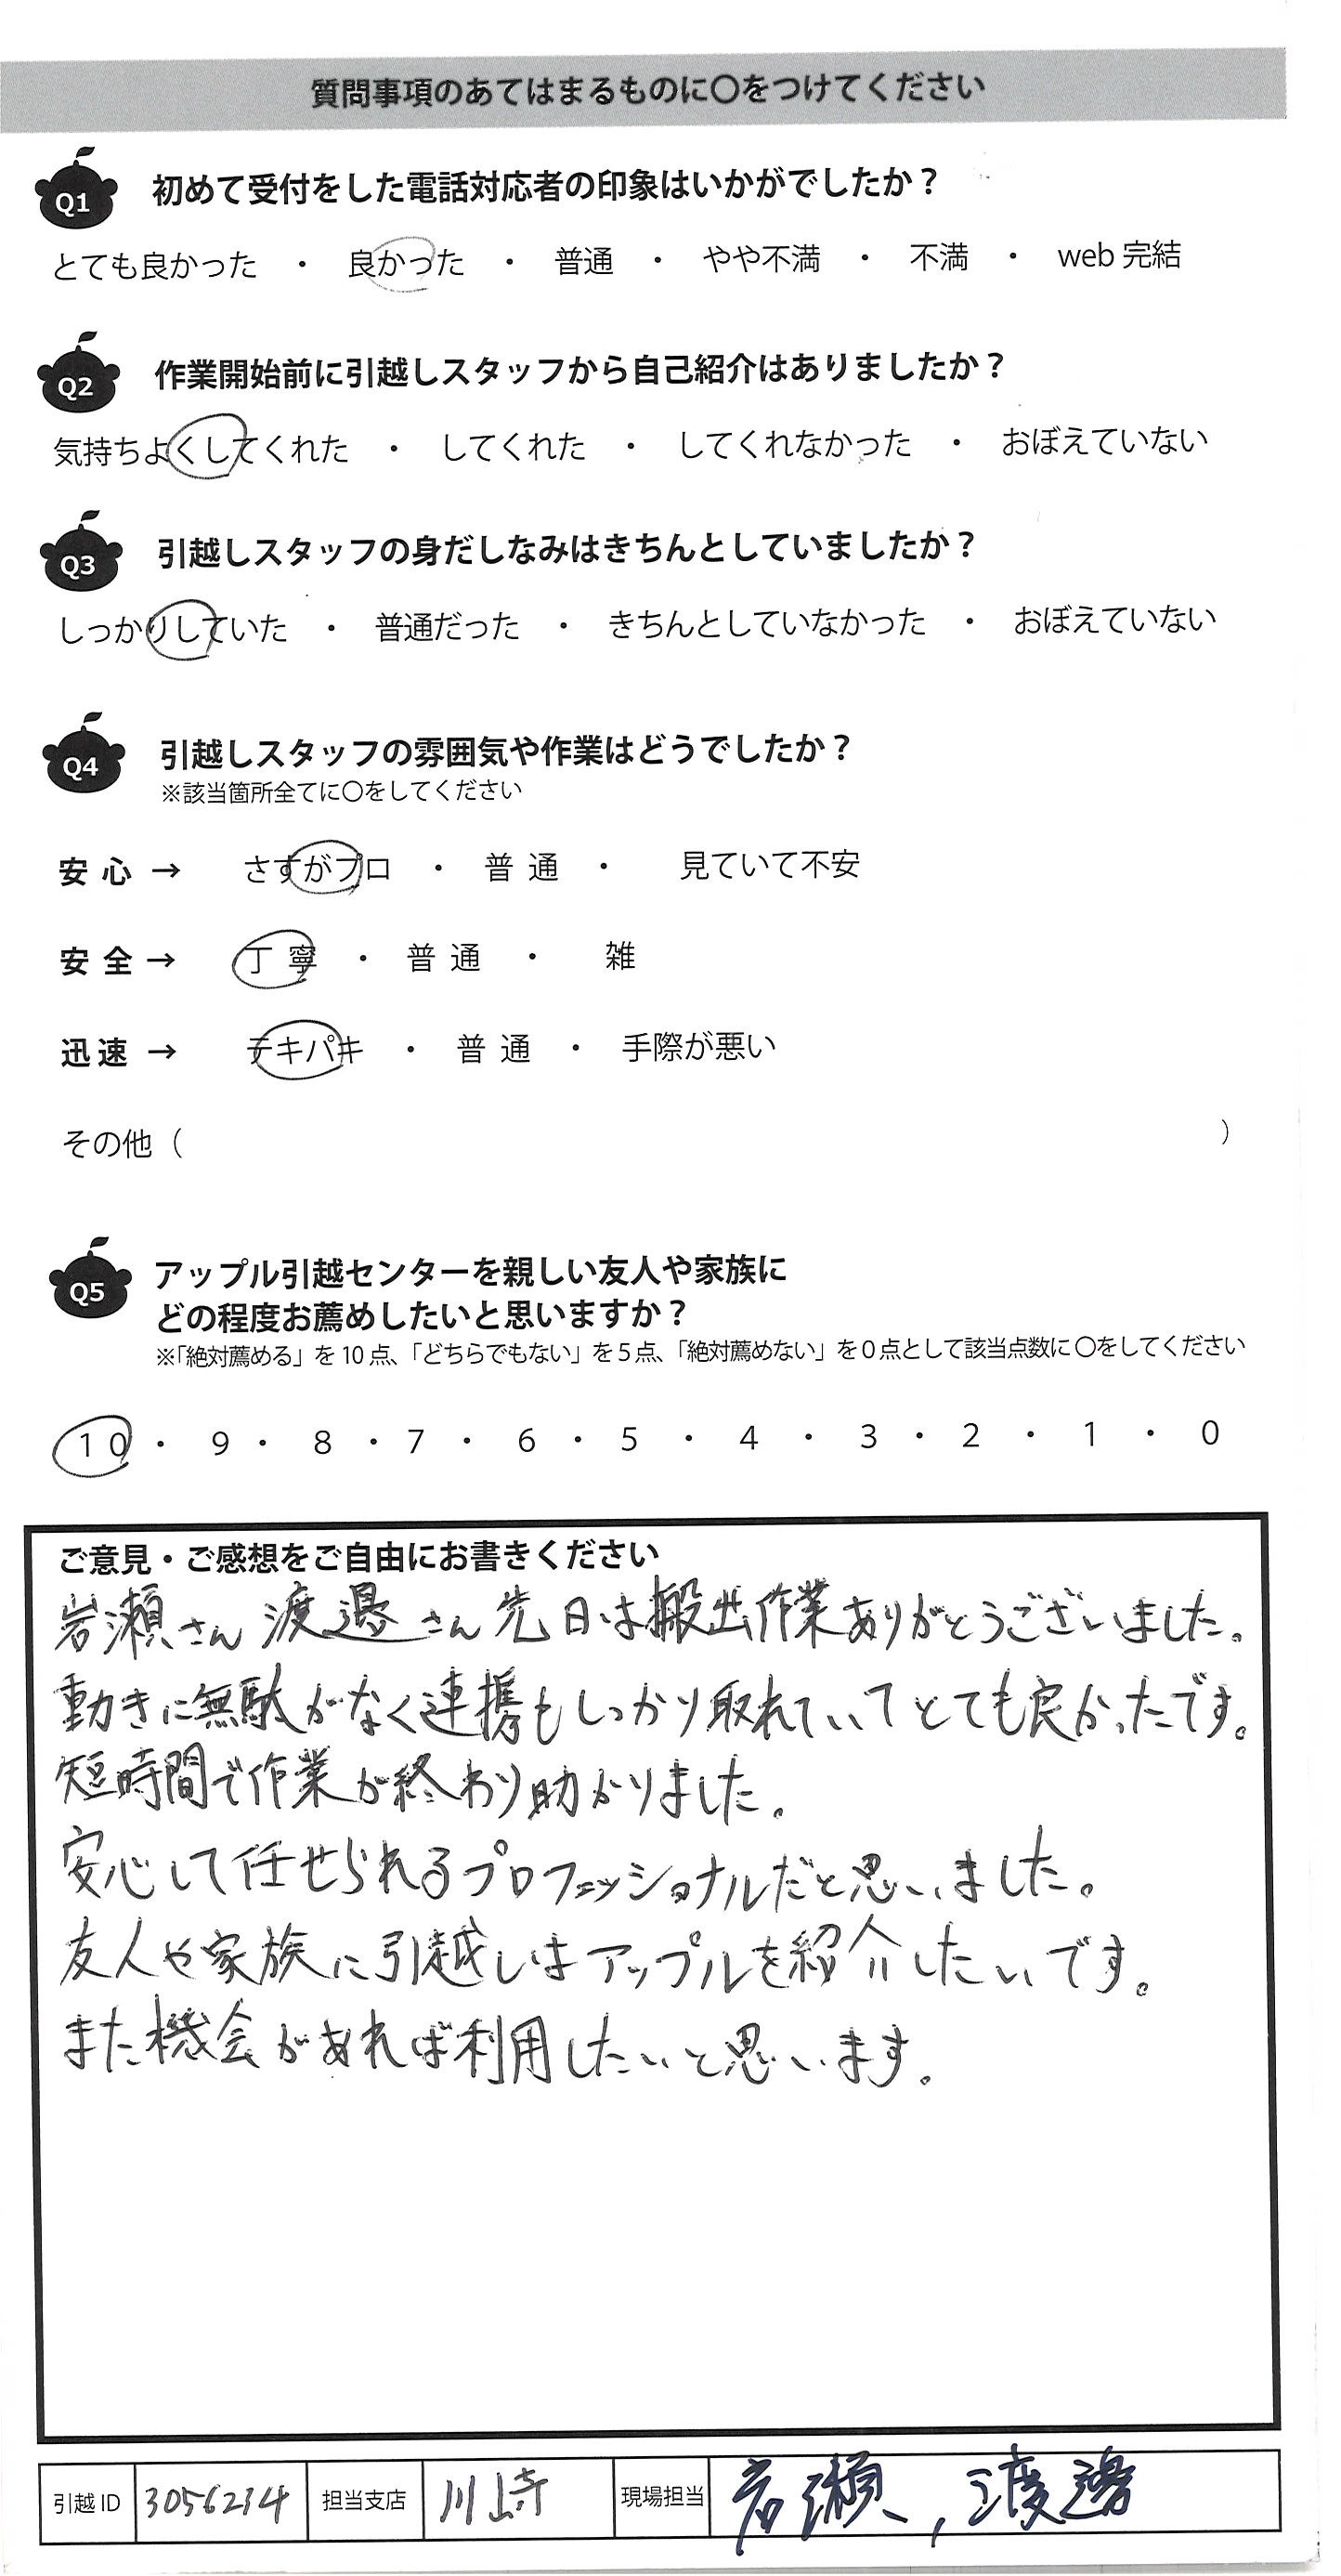 質問事項のあてはまるものに〇をつけてください
Q1 初めて受付をした電話対応者の印象はいかがでしたか？
とても良かった ・ 良かった ・ 普通 ・ やや不満 ・ 不満 ・ web 完結
Q2 作業開始前に引越しスタッフから自己紹介はありましたか？
気持ちよくしてくれた ・ してくれた ・ してくれなかった ・ おぼえていない
Q3 引越しスタッフの身だしなみはきちんとしていましたか？
しっかりしていた ・ 普通だった ・ きちんとしていなかった ・ おぼえていない
Q4 引越しスタッフの雰囲気や作業はどうでしたか？
※該当箇所全てに〇をしてください
安心 → さすがプロ ・ 普通 ・ 見ていて不安
安全 → 丁寧 ・ 普通 ・ 雑
迅速 → テキパキ ・ 普通 ・ 手際が悪い
その他（ ）
Q5 アップル引越センターを親しい友人や家族に
どの程度お薦めしたいと思いますか？
※「絶対薦める」を10点、「どちらでもない」を5点、「絶対薦めない」を0点として該当点数に〇をしてください
10 ・ 9 ・ 8 ・ 7 ・ 6 ・ 5 ・ 4 ・ 3 ・ 2 ・ 1 ・ 0
ご意見・ご感想をご自由にお書きください
岩瀬さん 渡邊さん 先日は搬出作業ありがとうございました。
動きに無駄がなく連携もしっかり取れていてとても良かったです。
短時間で作業が終わり助かりました。
安心して任せられるプロフェッショナルだと思いました。
友人や家族に引越しはアップルを紹介したいです。
また機会があれば利用したいと思います。
引越ID 3056234 担当支店 川崎 現場担当 岩瀬, 渡邊